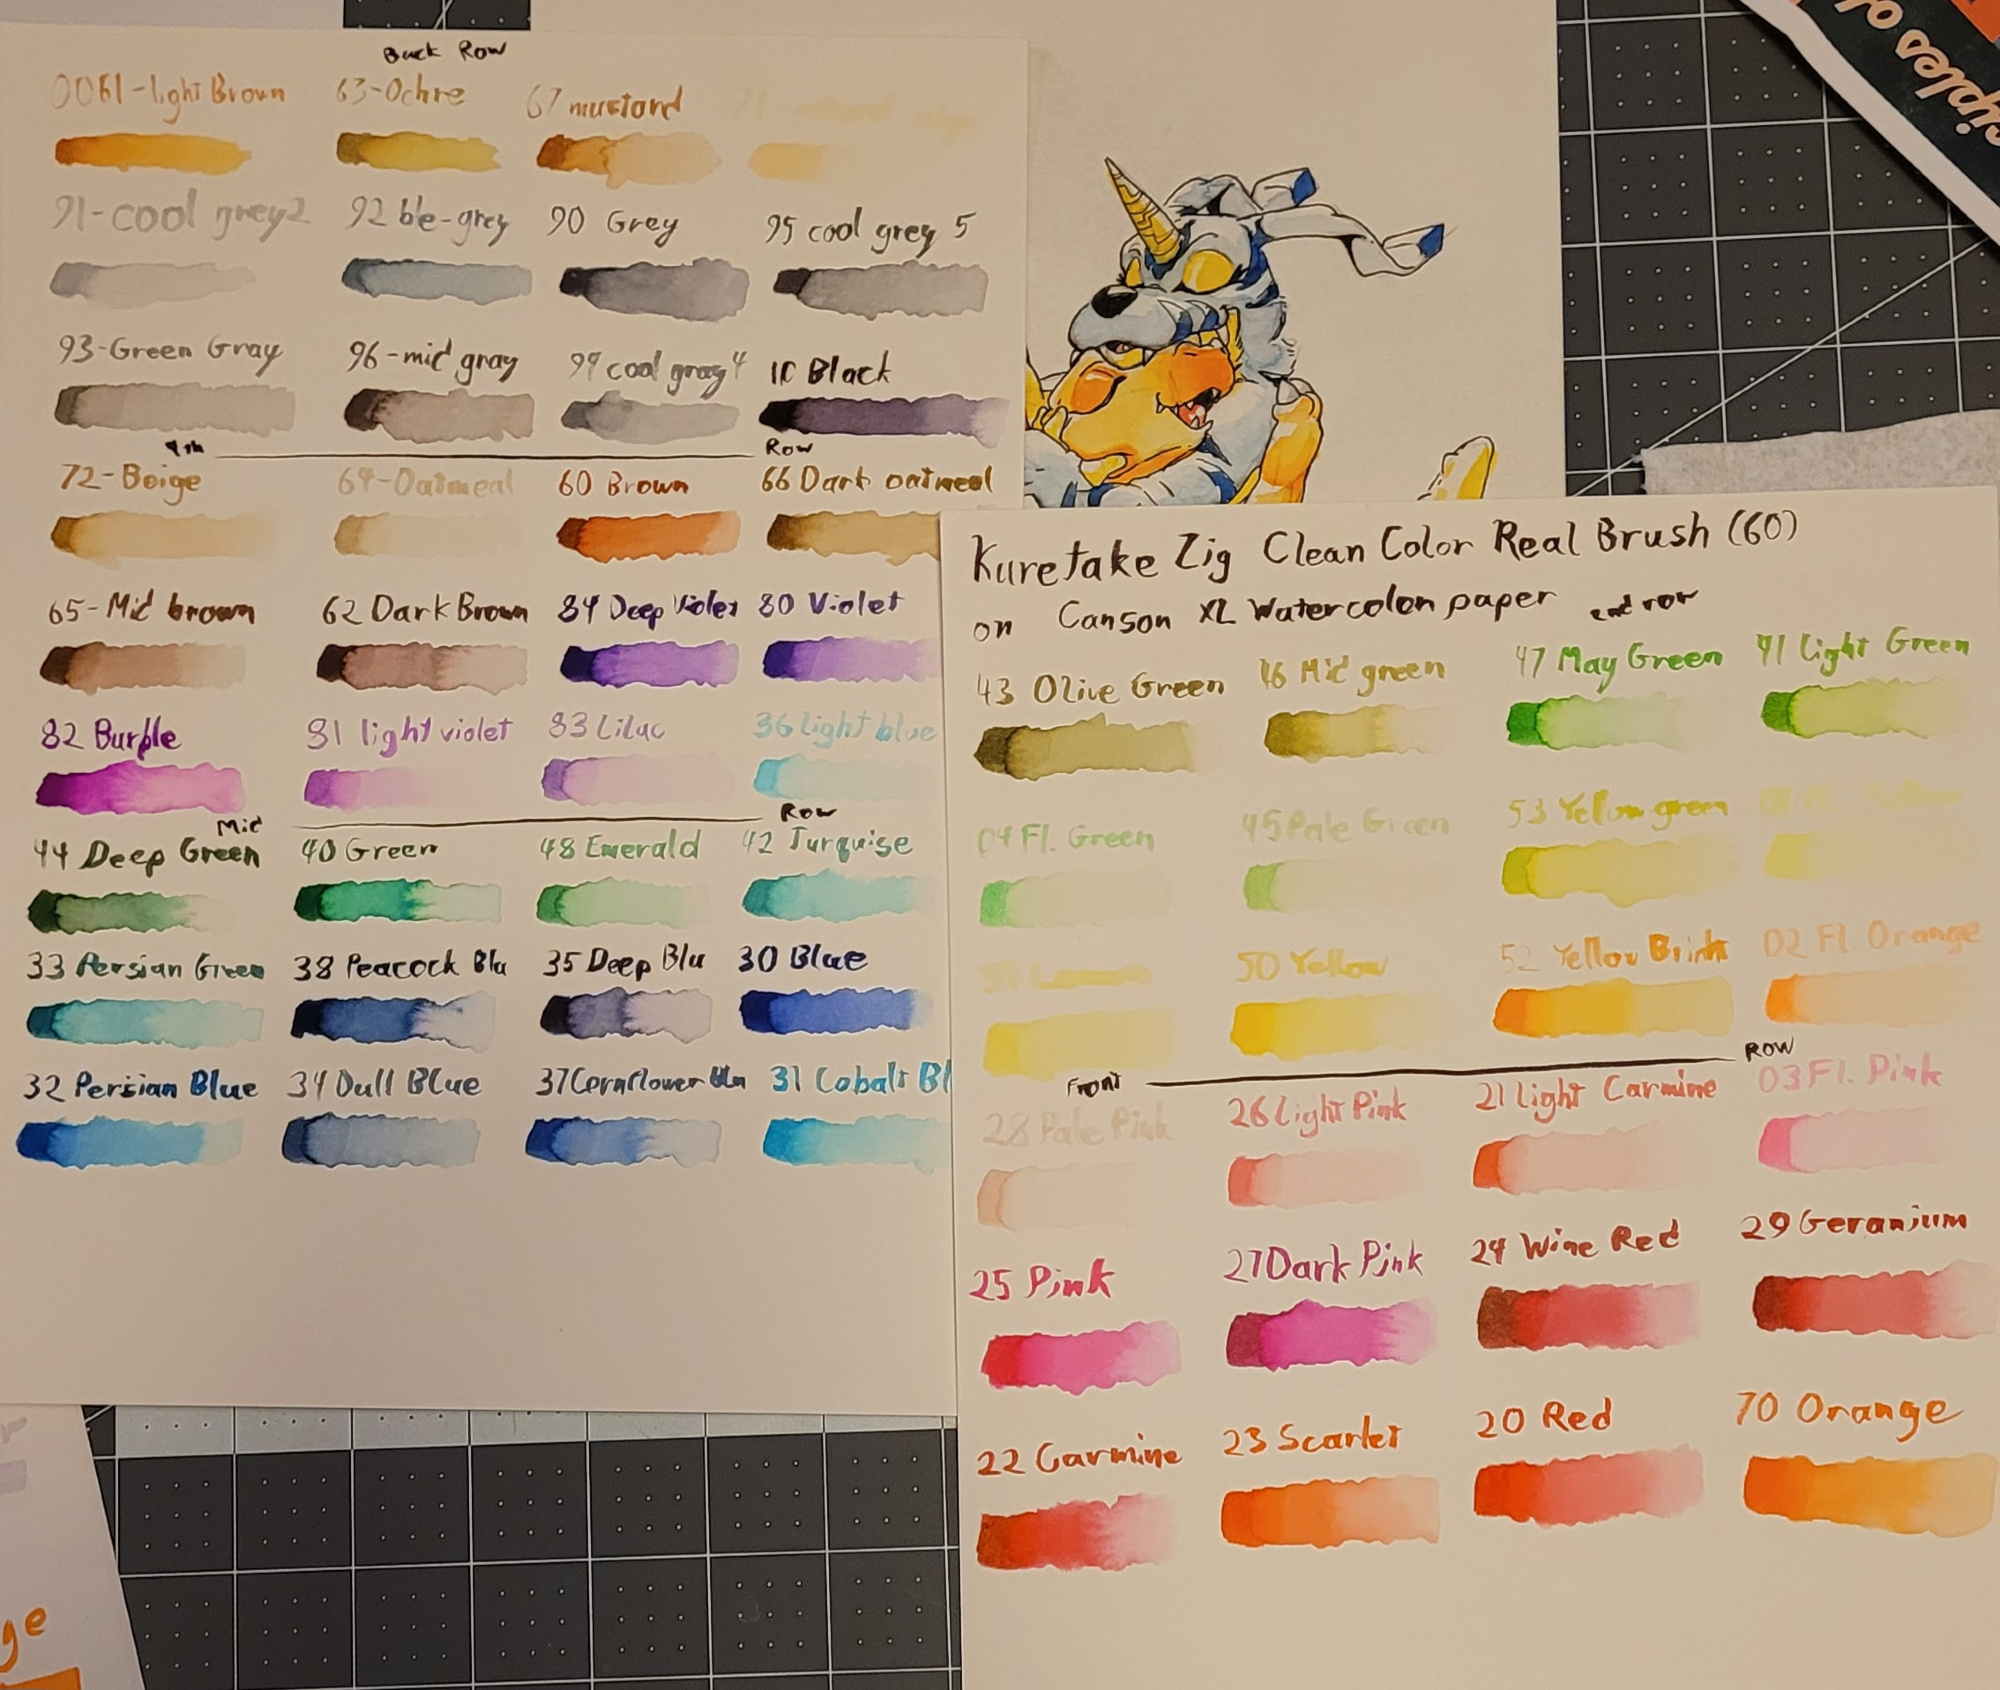 Back Row
0061-light Brown 63-Ochre 67 mustard
91-cool grey2 92 ble-grey 90 Grey 95 cool grey 5
93-Green Gray 96-mid gray 99 cool gray 4 10 Black
4th Row
72-Beige 64-Oatmeal 60 Brown 66 Dark oatmeal
65-Mid brown 62 Dark Brown 84 Deep Violet 80 Violet
82 Burple 81 light violet 83 Lilac 36 light blue
Mid Row
44 Deep Green 40 Green 48 Emerald 42 Turquise
33 Persian Green 38 Peacock Blu 35 Deep Blu 30 Blue
32 Persian Blue 34 Dull Blue 37 Cornflower Blu 31 Cobalt Bl
Kuretake Zig Clean Color Real Brush (60)
on Canson XL Watercolor paper 2nd row
43 Olive Green 46 Mid green 47 May Green 41 light Green
04 Fl. Green 45 Pale Green 53 Yellow green
50 Yellow 52 Yellow Brink 02 Fl. Orange
Front Row
28 Pale Pink 26 Light Pink 21 light Carmine 03 Fl. Pink
25 Pink 27 Dark Pink 24 Wine Red 29 Geranium
22 Carmine 23 Scarlet 20 Red 70 Orange
ciples of
ge